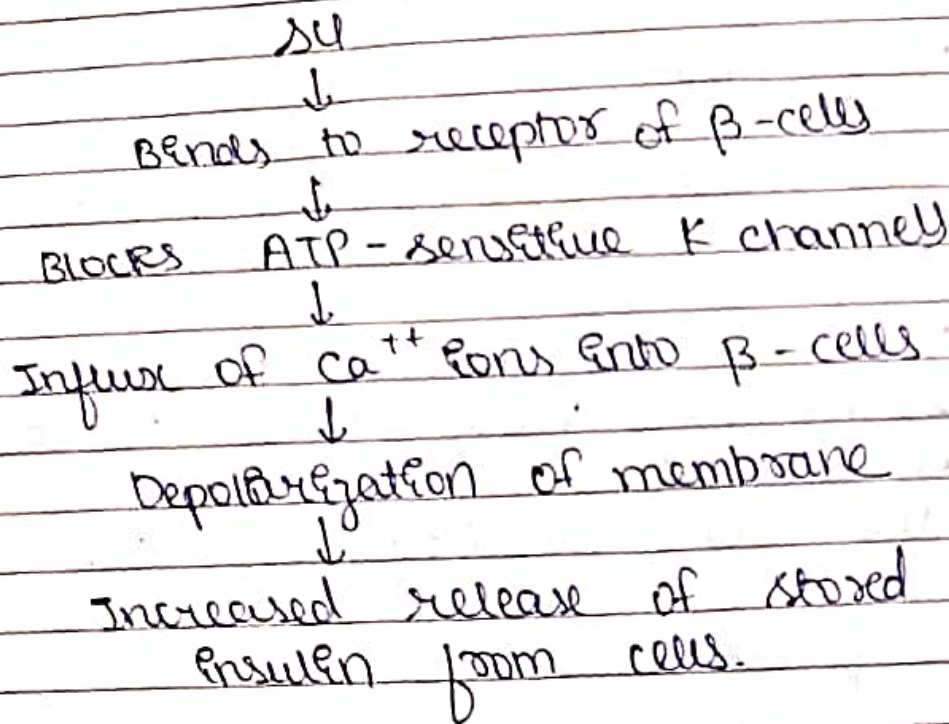 SU
↓
Binds to receptor of β-cells
↓
Blocks ATP-sensitive K channels
↓
Influx of Ca⁺⁺ ions into β-cells
↓
Depolarization of membrane
↓
Increased release of stored
insulin from cells.